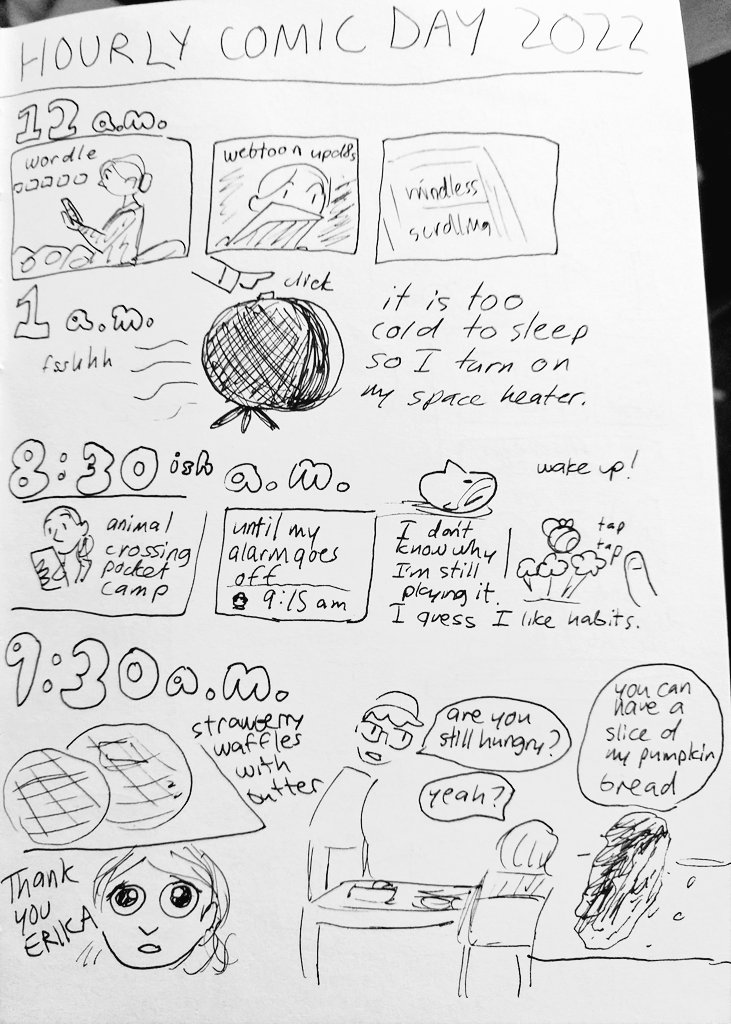 HOURLY COMIC DAY 2022
12 a.m.
wordle
webtoon upd8s
mindless
scrolling
1 a.m.
click
fsshhh
it is too
cold to sleep
so I turn on
my space heater.
8:30 ish a.m.
animal
crossing
pocket
camp
until my
alarm goes
off
9:15 am
I don't
know why
I'm still
playing it.
I guess I like habits.
wake up!
tap
tap
9:30 a.m.
strawberry
waffles
with
butter
are you
still hungry?
yeah?
you can
have a
slice of
my pumpkin
bread
Thank
you
ERICA